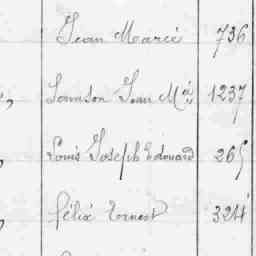 Jean Marie 736
Jean Mª 1237
Louis Joseph Edouard 265
félix Ernest 3244